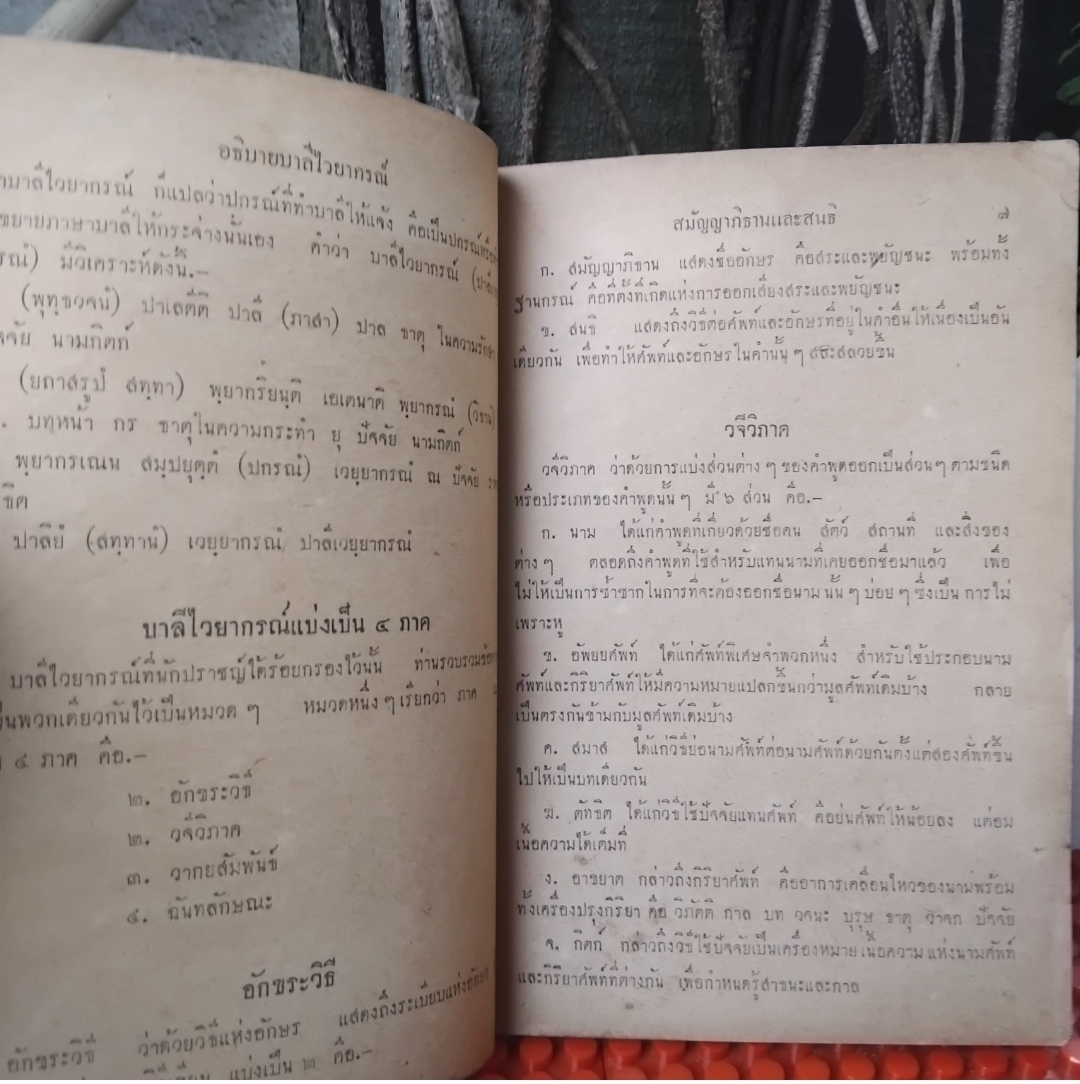 อธิบายบาลีไวยากรณ์
บาลีไวยากรณ์ ก็แปลว่าปกรณ์ที่ทำบาลีให้แจ้ง คือเป็นปกรณ์
ขยายภาษาบาลีให้กระจ่างนั่นเอง คำว่า บาลีไวยากรณ์
มีวิเคราะห์ดังนี้.-
(พุทฺธวจนํ) ปาเลตีติ ปาลี (ภาสา) ปาล ธาตุ ในความรักษา
ปัจจัย นามกิตก์
(ยถาสรูปํ สทฺทา) พฺยากรียนฺติ เอเตนาติ พฺยากรณํ (วิธานํ)
บทหน้า กร ธาตุในความกระทำ ยุ ปัจจัย นามกิตก์
พฺยากรเณน สมฺปยุตฺตํ (ปกรณํ) เวยฺยากรณํ ณ ปัจจัย
ปาลิยํ (สทฺทานํ) เวยฺยากรณํ ปาลีเวยฺยากรณํ
บาลีไวยากรณ์แบ่งเป็น ๔ ภาค
บาลีไวยากรณ์ที่นักปราชญ์ได้ร้อยกรองไว้นั้น ท่านรวบรวม
เป็นพวกเดียวกันไว้เป็นหมวด ๆ หมวดหนึ่ง ๆ เรียกว่า ภาค
๔ ภาค คือ.-
๒. อักขระวิธี
๒. วจีวิภาค
๓. วากยสัมพันธ์
๔. ฉันทลักษณะ
อักขระวิธี
อักขระวิธี ว่าด้วยวิธีแห่งอักษร แสดงถึงระเบียบแห่งอักษร
แบ่งเป็น ๒ คือ.-
สมัญญาภิธานและสนธิ ๗
ก. สมัญญาภิธาน แสดงชื่ออักษร คือสระและพยัญชนะ พร้อมทั้ง
ฐานกรณ์ คือที่ตั้งที่เกิดแห่งการออกเสียงสระและพยัญชนะ
ข. สนธิ แสดงถึงวิธีต่อศัพท์และอักษรที่อยู่ในคำอื่นให้เนื่องเป็นอัน
เดียวกัน เพื่อทำให้ศัพท์และอักษรในคำนั้น ๆ สละสลวยขึ้น
วจีวิภาค
วจีวิภาค ว่าด้วยการแบ่งส่วนต่าง ๆ ของคำพูดออกเป็นส่วนๆ ตามชนิด
หรือประเภทของคำพูดนั้น ๆ มี ๖ ส่วน คือ.-
ก. นาม ได้แก่คำพูดที่เกี่ยวด้วยชื่อคน สัตว์ สถานที่ และสิ่งของ
ต่าง ๆ ตลอดถึงคำพูดที่ใช้สำหรับแทนนามที่เคยออกชื่อมาแล้ว เพื่อ
ไม่ให้เป็นการซ้ำซากในการที่จะต้องออกชื่อนาม นั้น ๆ บ่อย ๆ ซึ่งเป็น การไม่
เพราะหู
ข. อัพยยศัพท์ ได้แก่ศัพท์พิเศษจำพวกหนึ่ง สำหรับใช้ประกอบนาม
ศัพท์และกิริยาศัพท์ให้มีความหมายแปลกขึ้นกว่ามูลศัพท์เดิมบ้าง กลาย
เป็นตรงกันข้ามกับมูลศัพท์เดิมบ้าง
ค. สมาส ได้แก่วิธีย่อนามศัพท์ต่อนามศัพท์ด้วยกันตั้งแต่สองศัพท์ขึ้น
ไปให้เป็นบทเดียวกัน
ฆ. ตัทธิต ได้แก่วิธีใช้ปัจจัยแทนศัพท์ คือย่นศัพท์ให้น้อยลง แต่อม
เนื้อความได้เต็มที่
ง. อาขยาต กล่าวถึงกิริยาศัพท์ คืออาการเคลื่อนไหวของนามพร้อม
ทั้งเครื่องปรุงกิริยา คือ วิภัตติ กาล บท วจนะ บุรุษ ธาตุ วาจก ปัจจัย
จ. กิตก์ กล่าวถึงวิธีใช้ปัจจัยเป็นเครื่องหมาย เนื้อความ แห่งนามศัพท์
และกิริยาศัพท์ที่ต่างกัน เพื่อกำหนดรู้สาธนะและกาล